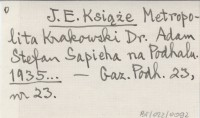 J. E. Książe Metropo-
lita Krakowski Dr. Adam
Stefan Sapieha na Podhalu.
1935... — Gaz. Podh. 23,
nr 23.